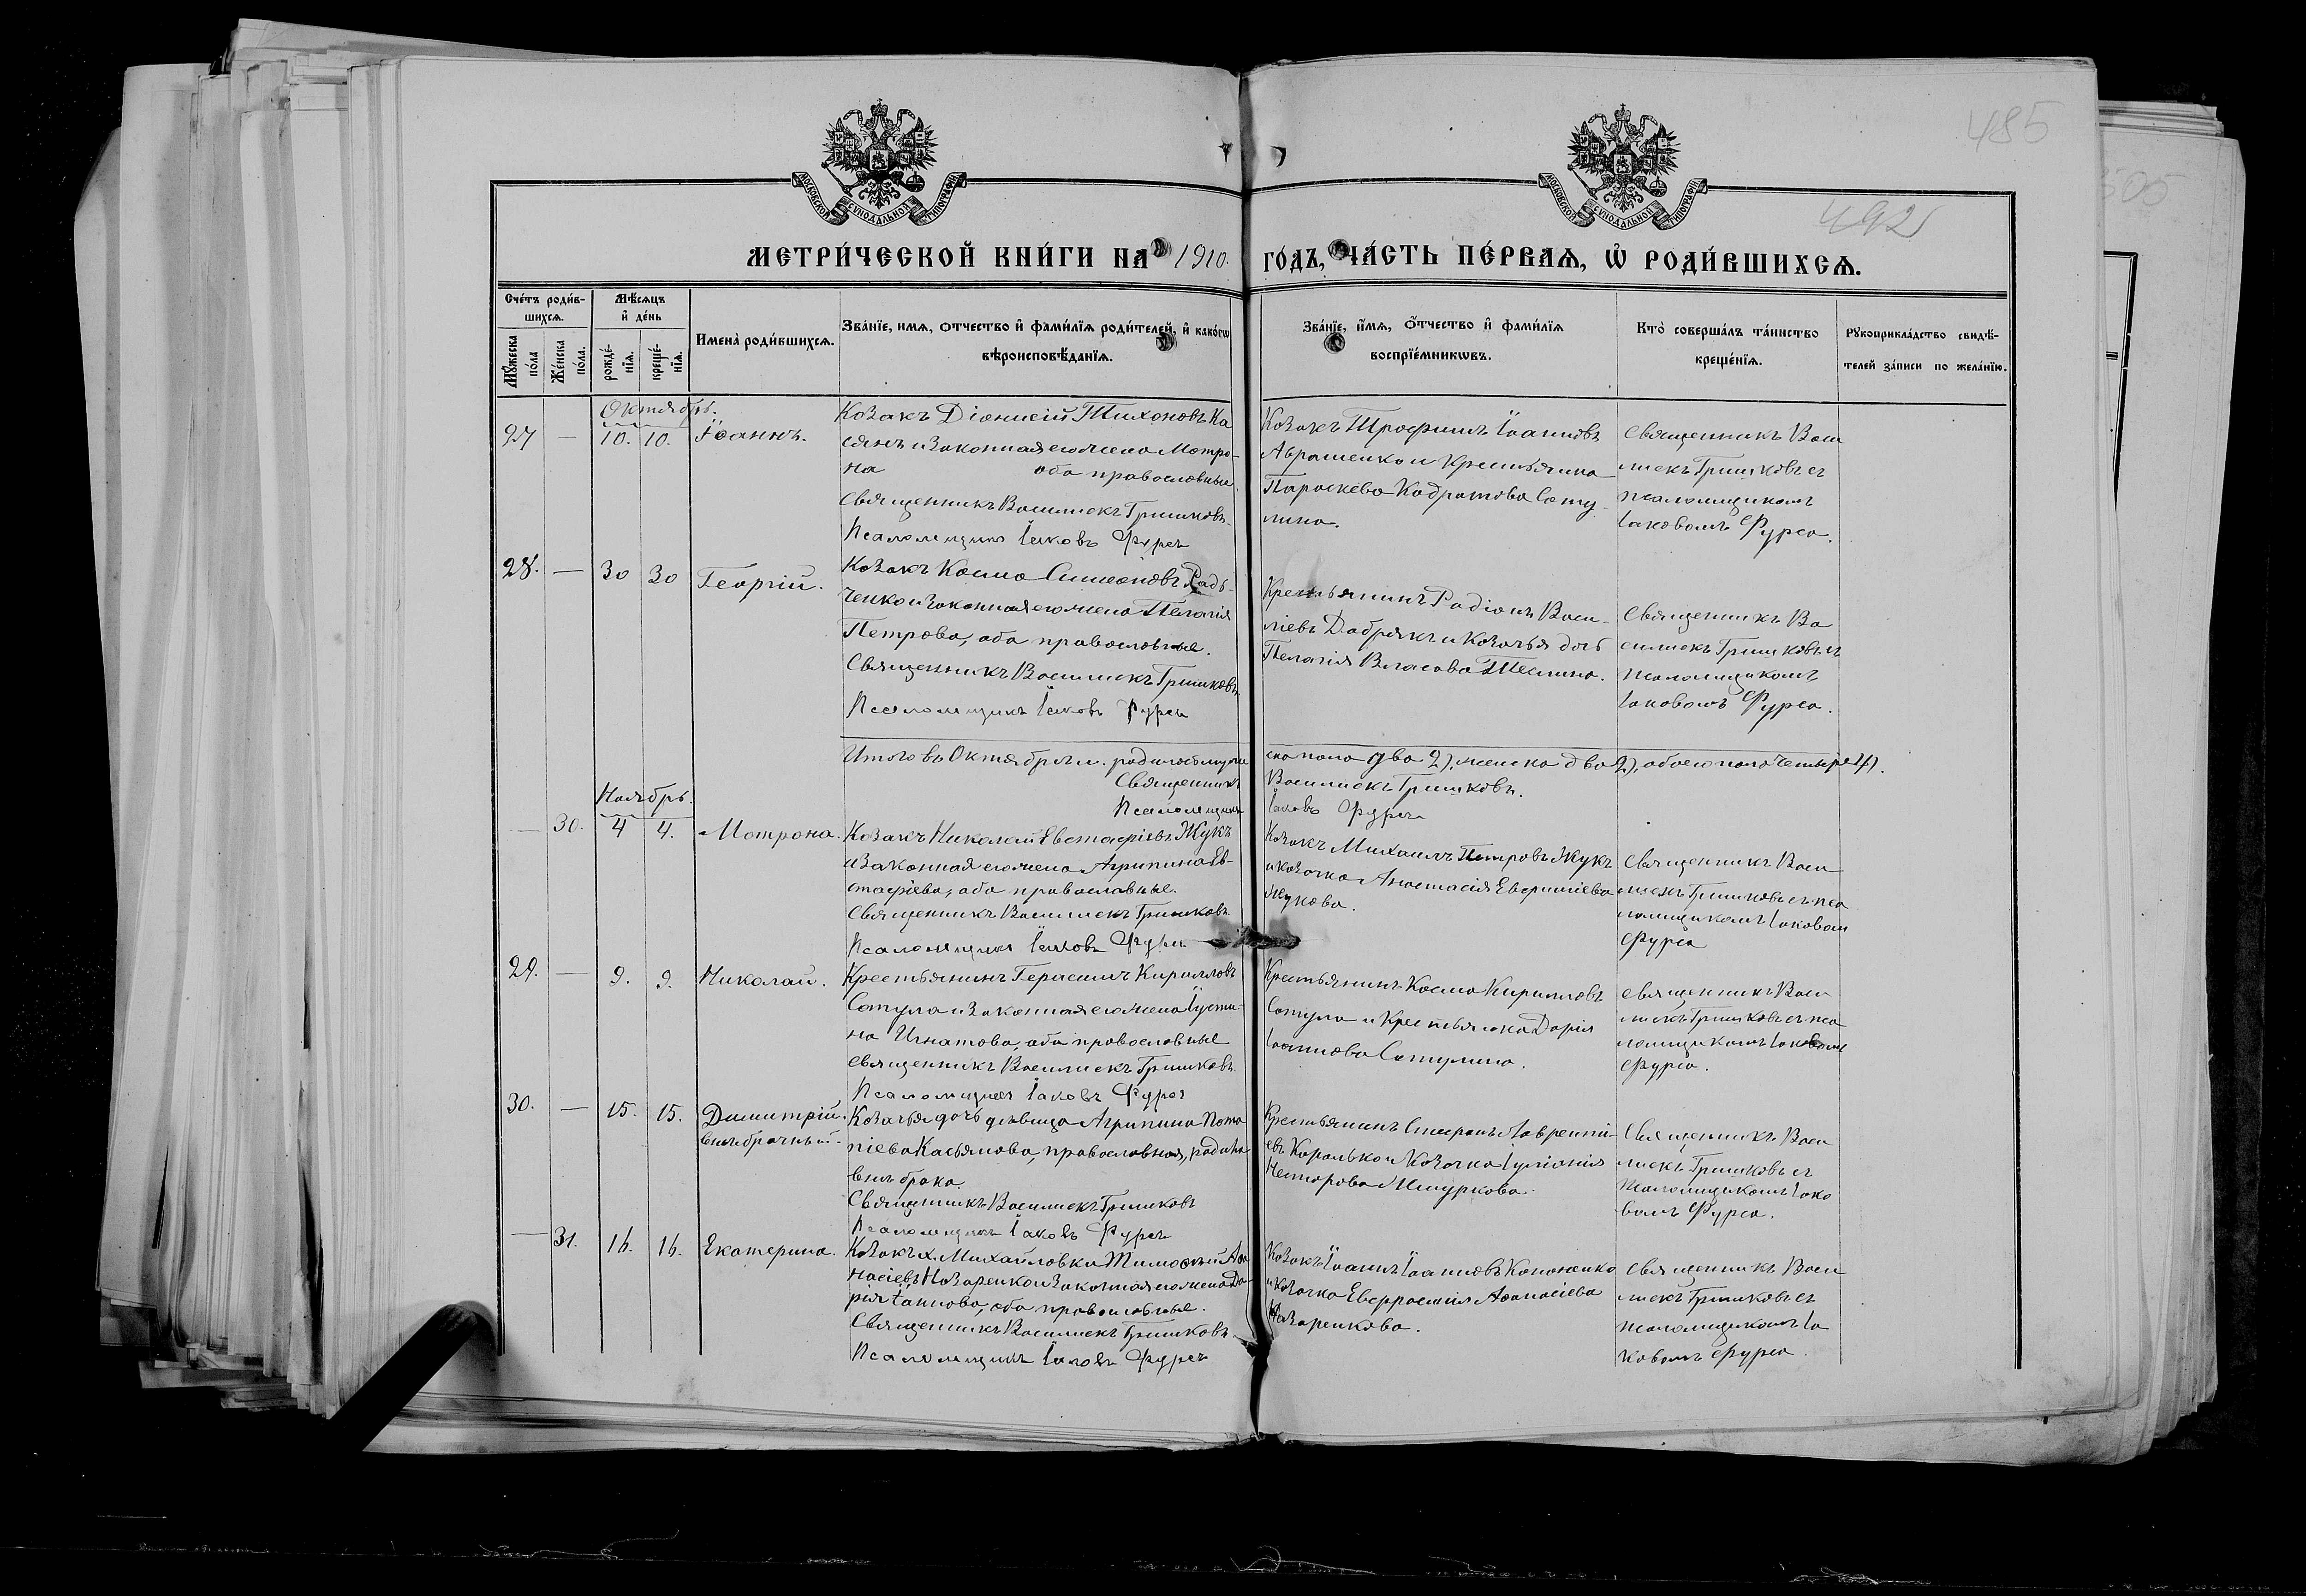 485
492
505
МОСКОВСКОЙ СѴНОДАЛЬНОЙ ТИПОГРАФІИ
МОСКОВСКОЙ СѴНОДАЛЬНОЙ ТИПОГРАФІИ
МЕТРИ́ЧЕСКОЙ КНИ́ГИ НА 1910. ГО́ДЪ, ЧА́СТЬ ПЕ́РВАѦ, Ѡ҆ РОДИ́ВШИХСѦ.
Сче́тъ роди́в-
шихсѧ.
Мꙋ́жеска
по́ла
Же́нска
по́ла.
Мѣ́сѧцъ
и҆ де́нь
рожде́-
нїѧ.
креще́-
нїѧ.
Имена̀ роди́вшихсѧ.
Зва́нїе, имѧ, ѻтчество и҆ фами́лїѧ роди́телей, и҆ како́гѡ
вѣроисповѣ́данїѧ.
Зва́нїе, и҆́мѧ, ѻ҆́тчество и҆ фами́лїѧ
воспрїе́мникѡвъ.
Кто̀ соверша́лъ та́инство
креще́нїѧ.
Рꙋкоприкла́дство свидѣ́-
телей за́писи по жела́нїю.
Октябрь.
27 — 10. 10. Іоаннъ.
Козакъ Діонисій Тихоновъ Ка
сянъ и законная его жена Мотро-
на оба православные.
Священникъ Василискъ Гришковъ.
Псаломщикъ Іаковъ Фурса
Козакъ Трофимъ Іоанновъ
Аврашенко и крестьянка
Параскева Кодратова Сату-
лина.
Священникъ Васи
лискъ Гришковъ съ
псаломщикомъ
Іаковомъ Фурса.
28. — 30 30 Георгій.
Козакъ Косма Симеоновъ Радь-
ченко и законная его жена Пелагія
Петрова, оба православные.
Священникъ Василискъ Гришковъ
Псаломщикъ Іаковъ Фурса
Крестьянинъ Радіонъ Васи-
ліевъ Добрякъ и козачья дочь
Пелагія Власова
Священникъ Ва
силискъ Гришковъ съ
псаломщикомъ
Іаковомъ Фурса.
Итого въ Октябрѣ м. родилось муже
ска пола два 2), женска два 2), обоего пола четыре 4).
Священникъ Василискъ Гришковъ.
Псаломщикъ Іаковъ Фурса
Ноябрь.
— 30. 4 4. Мотрона.
Козакъ Николай Евстафіевъ Жукъ
и законная его жена Агрипина Ев-
стафіева, оба православные.
Священникъ Василискъ Гришковъ
Псаломщикъ Іаковъ Фурса
Козакъ Михаилъ Петровъ Жукъ
и козачка Анастасія Евфиміева
Жукова.
Священникъ Васи
лискъ Гришковъ съ пса
ломщикомъ Іаковом
Фурса
29. — 9. 9. Николай.
Крестьянинъ Герасимъ Кирилловъ
Сатула и законная его жена Іусти-
на Игнатова, оба православные
Священникъ Василискъ Гришковъ.
Псаломщикъ Іаковъ Фурса
Крестьянинъ Косма Кирилловъ
Сатула и крестьянка Дарія
Іоаннова Сатулина.
Священникъ Васи
лискъ Гришковъ съ пса
ломщикомъ Іаковомъ
Фурса.
30. — 15. 15. Димитрій.
внѣбрачный.
Козачья дочь дѣвица Агрипина Пота
піева Касьянова, православная, родила
внѣ брака.
Священникъ Василискъ Гришковъ
Псаломщикъ Іаковъ Фурса
Крестьянинъ Стефанъ Лавренті-
евъ Королько и козачка Іуліанія
Несторова
Священникъ Васи
лискъ Гришковъ съ
псаломщикомъ Іако
вомъ Фурса.
— 31. 16. 16. Екатерина.
Козакъ х. Михайловки Тимофѣй Афа
насіевъ Назаренко и законная его жена Да-
рія Іоаннова, оба православные.
Священникъ Василискъ Гришковъ.
Псаломщикъ Іаковъ Фурса
Козакъ Іоаннъ Іоанновъ Кононенко
и козачка Евфросинія Афанасіева
Назаренкова.
Священникъ Васи
лискъ Гришковъ съ
псаломщикомъ Іа
ковомъ Фурса.